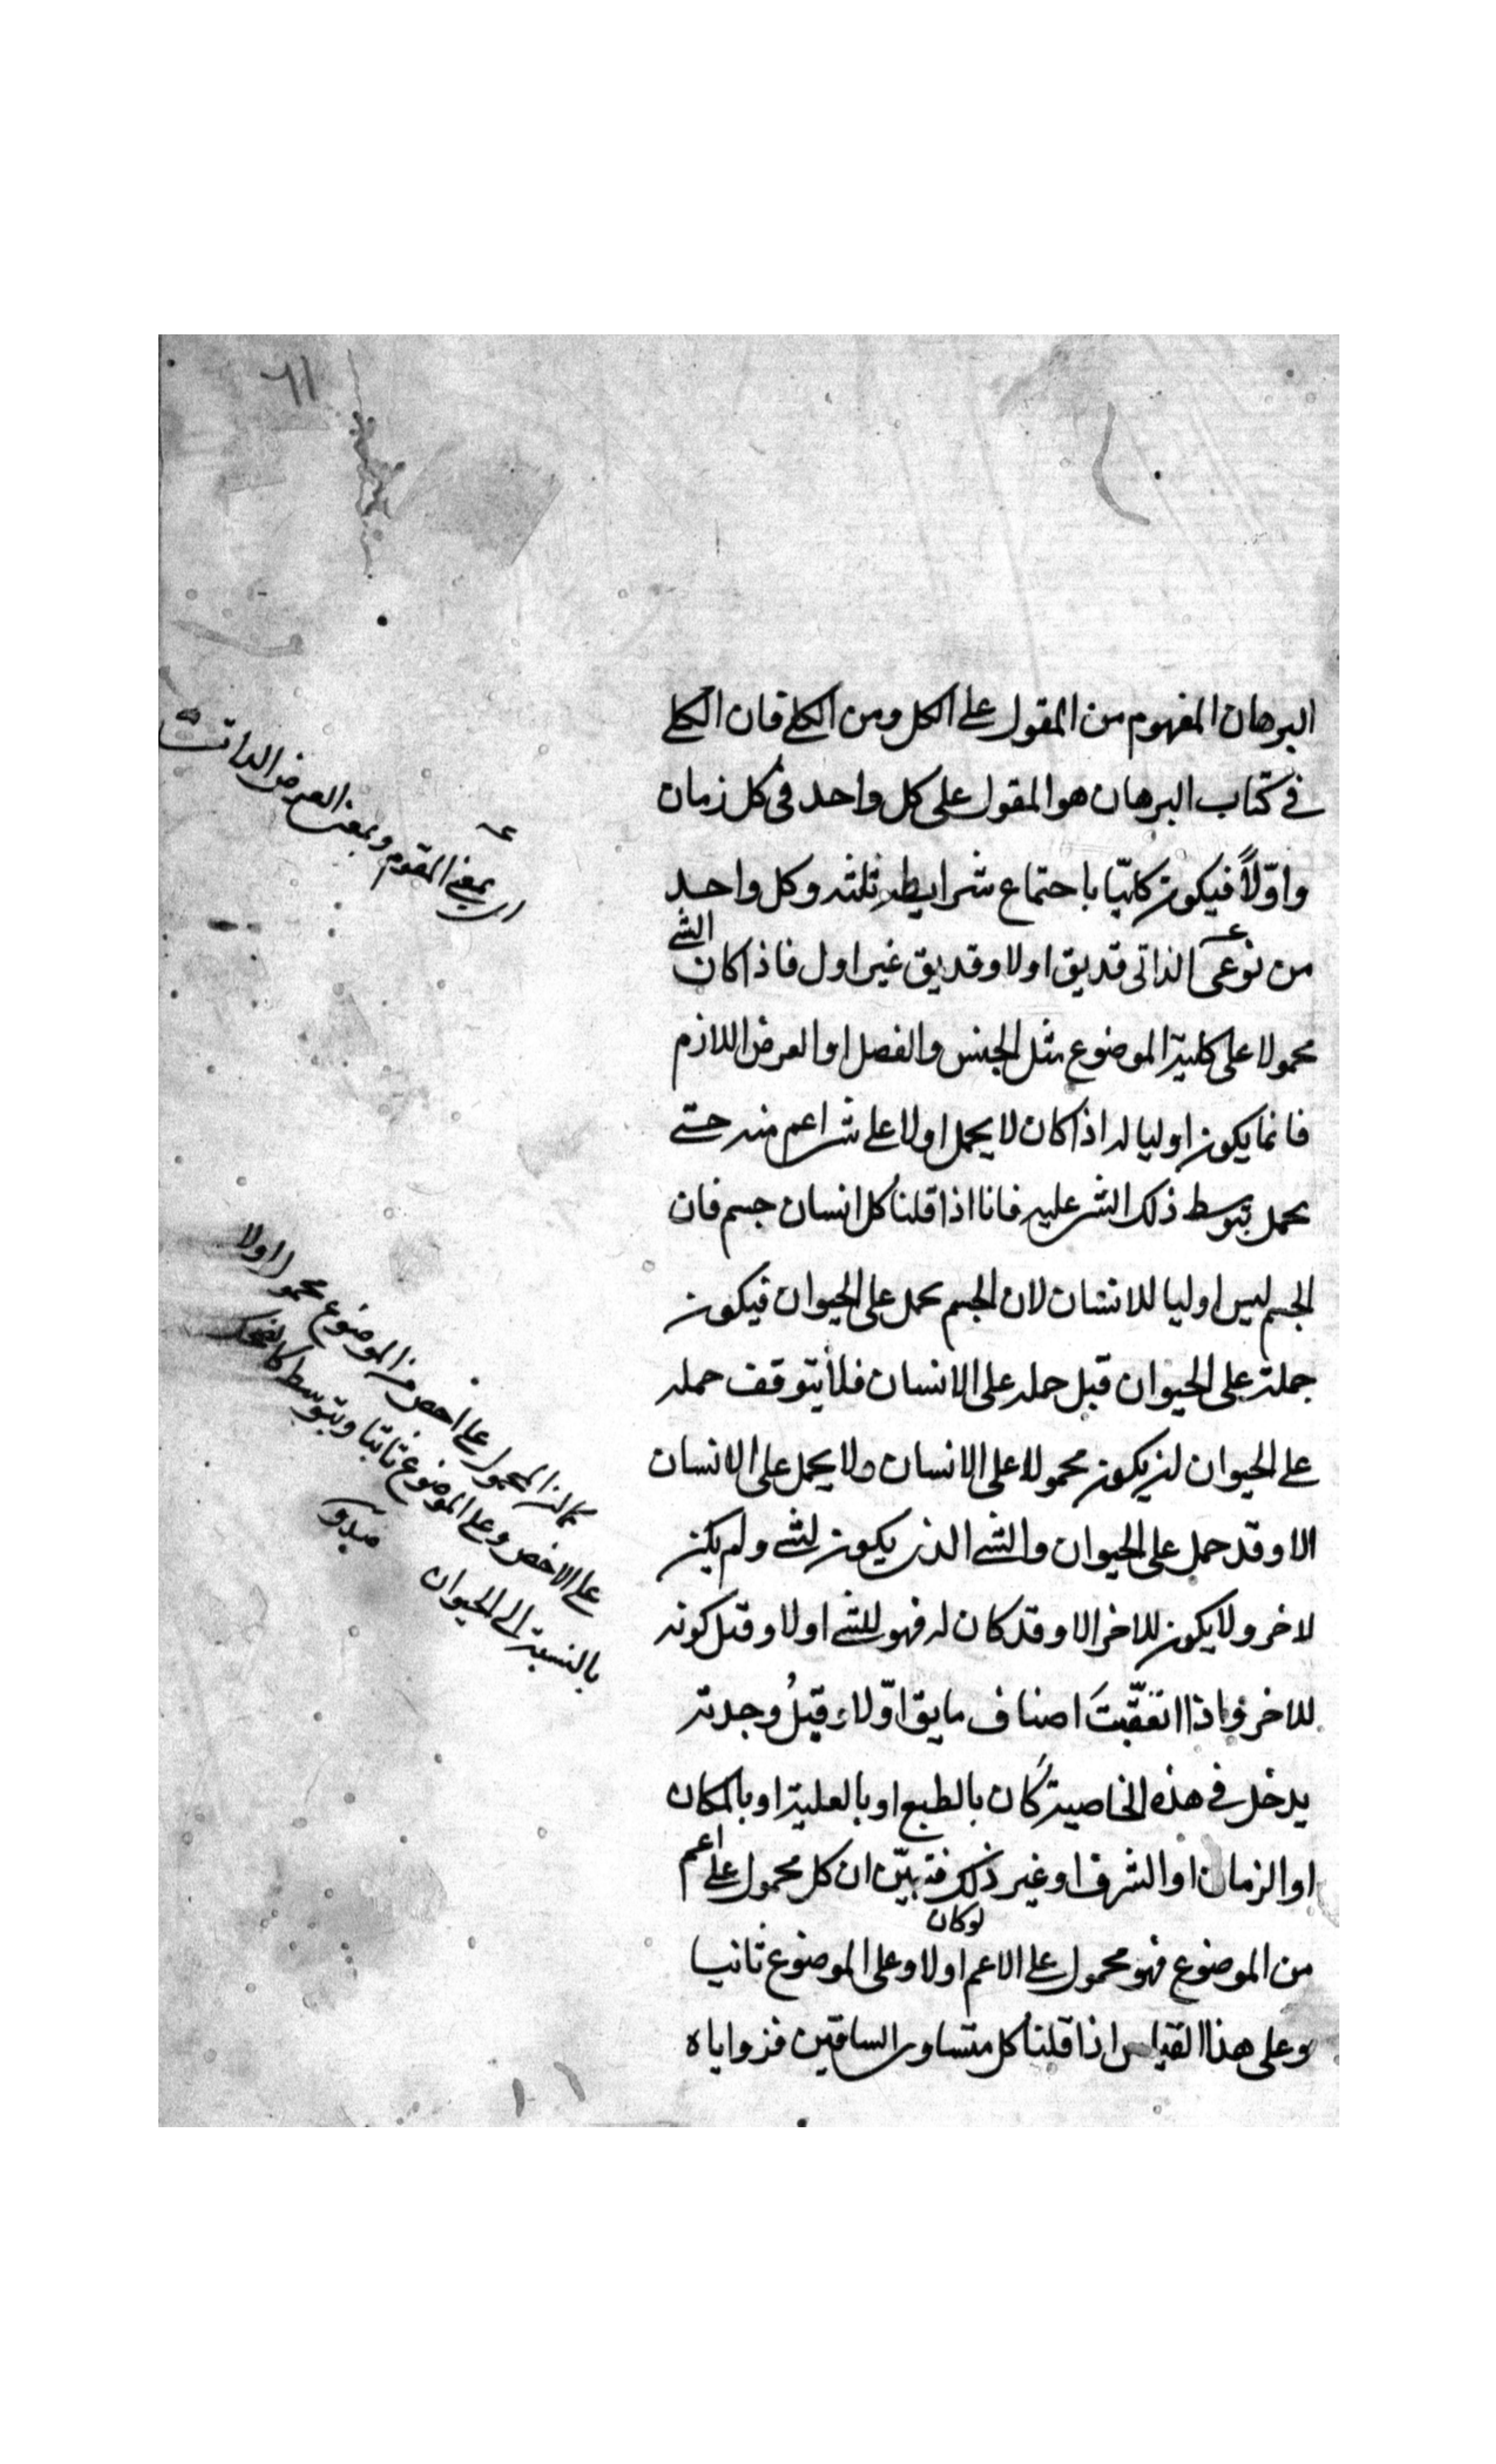 ٦١
البرهان المفهوم من المقول على الكل ومن الكلى فان الكلى
فى كتاب البرهان هو المقول على كل واحد فى كل زمان
واوّلاً فيكون كليّا باجتماع شرايط ثلثه وكل واحد
من نوعى الذاتى قد يق اولا وقد يق غير اول فاذا كان الشى
محمولا على كلية الموضوع مثل الجنس والفصل او العرض اللازم
فانما يكون اوليا له اذا كان لا يحمل اولا على شى اعم منه حتى
يحمل بتوسط ذلك الشى عليه فانا اذا قلنا كل انسان جسم فان
الجسم ليس اوليا للانسان لان الجسم يحمل على الحيوان فيكون
حمله على الحيوان قبل حمله على الانسان فلا يتوقف حمله
على الحيوان ان يكون محمولا على الانسان ولا يحمل على الانسان
الا وقد حمل على الحيوان والشى الذى يكون لشى ولم يكن
لاخر ولا يكون للاخر الا وقد كان له فهو للشى اولا وقبل كونه
للاخر واذا تعقّبتَ اصناف ما يق اوّلا وقبلُ وجدته
يدخل فى هذه الخاصية كان بالطبع او بالعلية او بالمكان
او الزمان او الشرف او غير ذلك فتبيّن ان كل محمول على اعم
لو كان
من الموضوع فهو محمول على الاعم اولا وعلى الموضوع ثانيا
وعلى هذا القياس اذا قلنا كل متساوى الساقين فزواياه
اى بمعنى المقوم وبمعنى العرض الذاتى
كما ان المحمول على اخص من الموضوع محمول اولا
على الاخص وعلى الموضوع ثانيا وبتوسط كالضحك
بالنسبة الى الحيوان